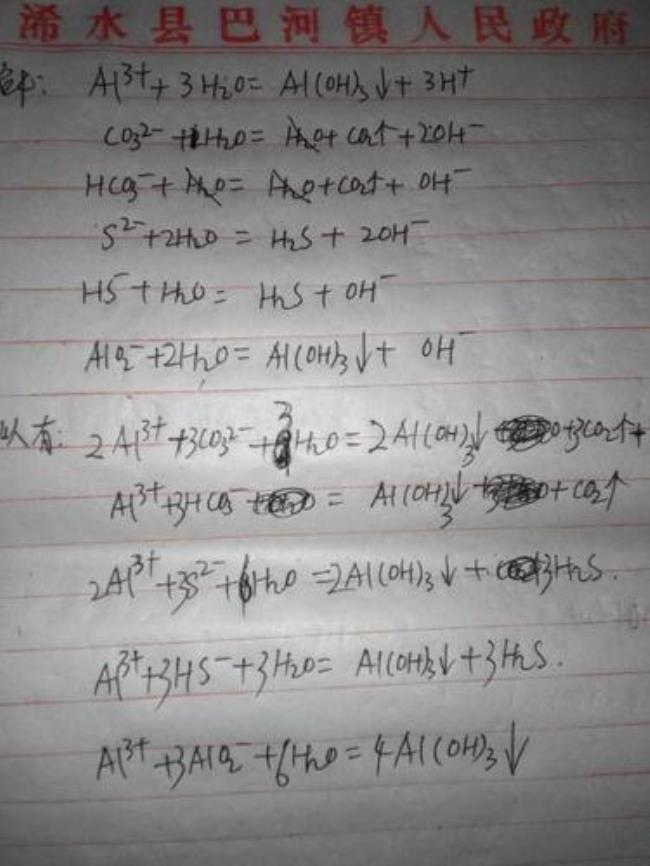 浠水县巴河镇人民政府
Al³⁺ + 3H₂O = Al(OH)₃↓ + 3H⁺
CO₃²⁻ + H₂O = CO₂↑ + 2OH⁻
HCO₃⁻ = CO₂↑ + OH⁻
S²⁻ + 2H₂O = H₂S + 2OH⁻
HS⁻ + H₂O = H₂S + OH⁻
AlO₂⁻ + 2H₂O = Al(OH)₃↓ + OH⁻
以有: 2Al³⁺ + 3CO₃²⁻ + 3H₂O = 2Al(OH)₃↓ + 3CO₂↑ +
Al³⁺ + 3HCO₃⁻ = Al(OH)₃↓ + CO₂↑
2Al³⁺ + 3S²⁻ + 6H₂O = 2Al(OH)₃↓ + 3H₂S.
Al³⁺ + 3HS⁻ + 3H₂O = Al(OH)₃↓ + 3H₂S.
Al³⁺ + 3AlO₂⁻ + 6H₂O = 4Al(OH)₃↓